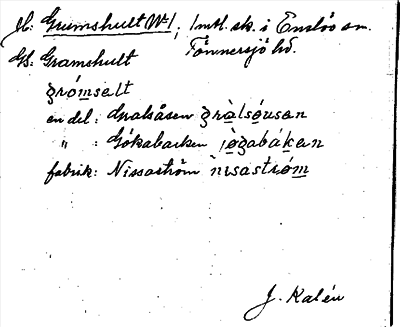 Jb: Grumshult No 1, 1 mtl. sk. i Enslöv sn.
Tönnersjö hd.
Gs: Gramshult
gròmselt
en del: Gralsåsen gràlsǫusen
" : Gökabacken jøgabákan
fabrik: Nissaström nisastrøm
J. Kalén